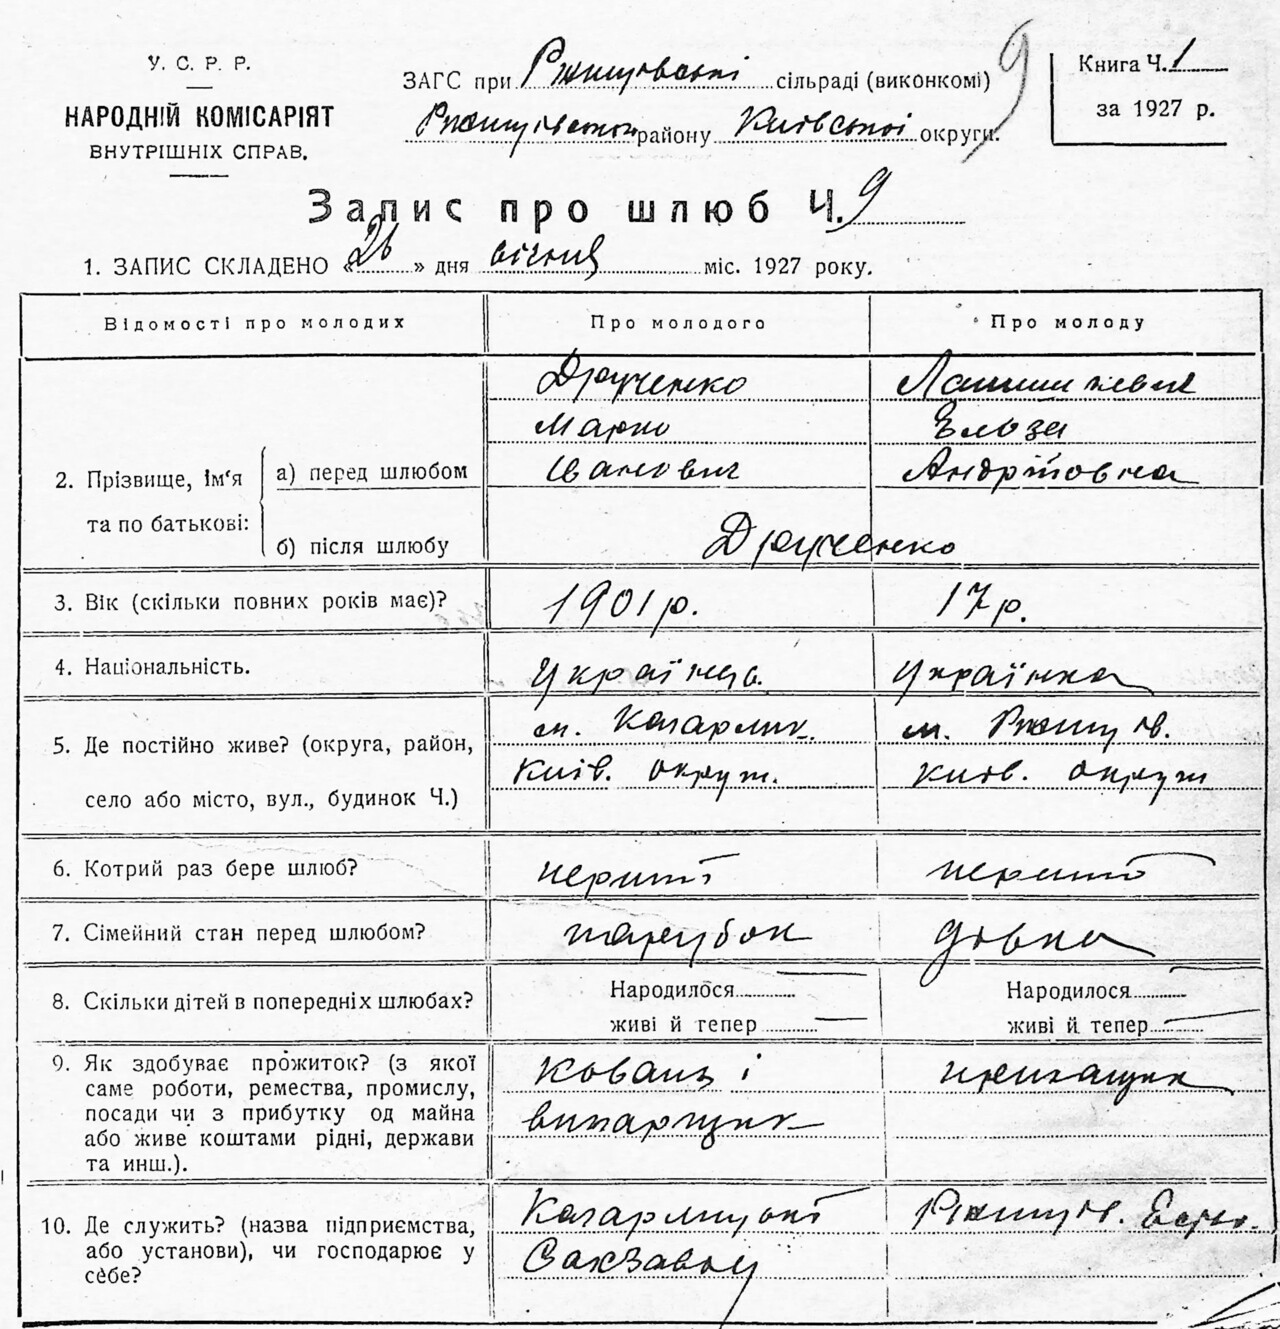 У. С. Р. Р.
НАРОДНІЙ КОМІСАРІЯТ
ВНУТРІШНІХ СПРАВ.
ЗАГС при Ржищівські сільраді (виконкомі)
Ржищівського району Київської округи.
9
Книга Ч. 1
за 1927 р.
Запис про шлюб Ч. 9
1. ЗАПИС СКЛАДЕНО «26» дня січня міс. 1927 року.
Відомості про молодих
Про молодого
Про молоду
2. Прізвище, ім‘я та по батькові:
а) перед шлюбом
Друченко
Марко
Іванович
Ельза
Андріївна
б) після шлюбу
Друченко
3. Вік (скільки повних років має)?
1901 р.
17 р.
4. Національність.
Українець
Українка
5. Де постійно живе? (округа, район,
село або місто, вул., будинок Ч.)
м. Кагарлик
Київ. округ.
м. Ржищів.
Київ. округ
6. Котрий раз бере шлюб?
перший
перший
7. Сімейний стан перед шлюбом?
парубок
дівка
8. Скільки дітей в попередніх шлюбах?
Народилося
живі й тепер
Народилося
живі й тепер
9. Як здобуває прожиток? (з якої
саме роботи, ремества, промислу,
посади чи з прибутку од майна
або живе коштами рідні, держави
та инш.).
Коваль і
варщик
10. Де служить? (назва підприємства,
або установи), чи господарює у
себе?
Кагарлицькі
Сахзавод
Ржищів.